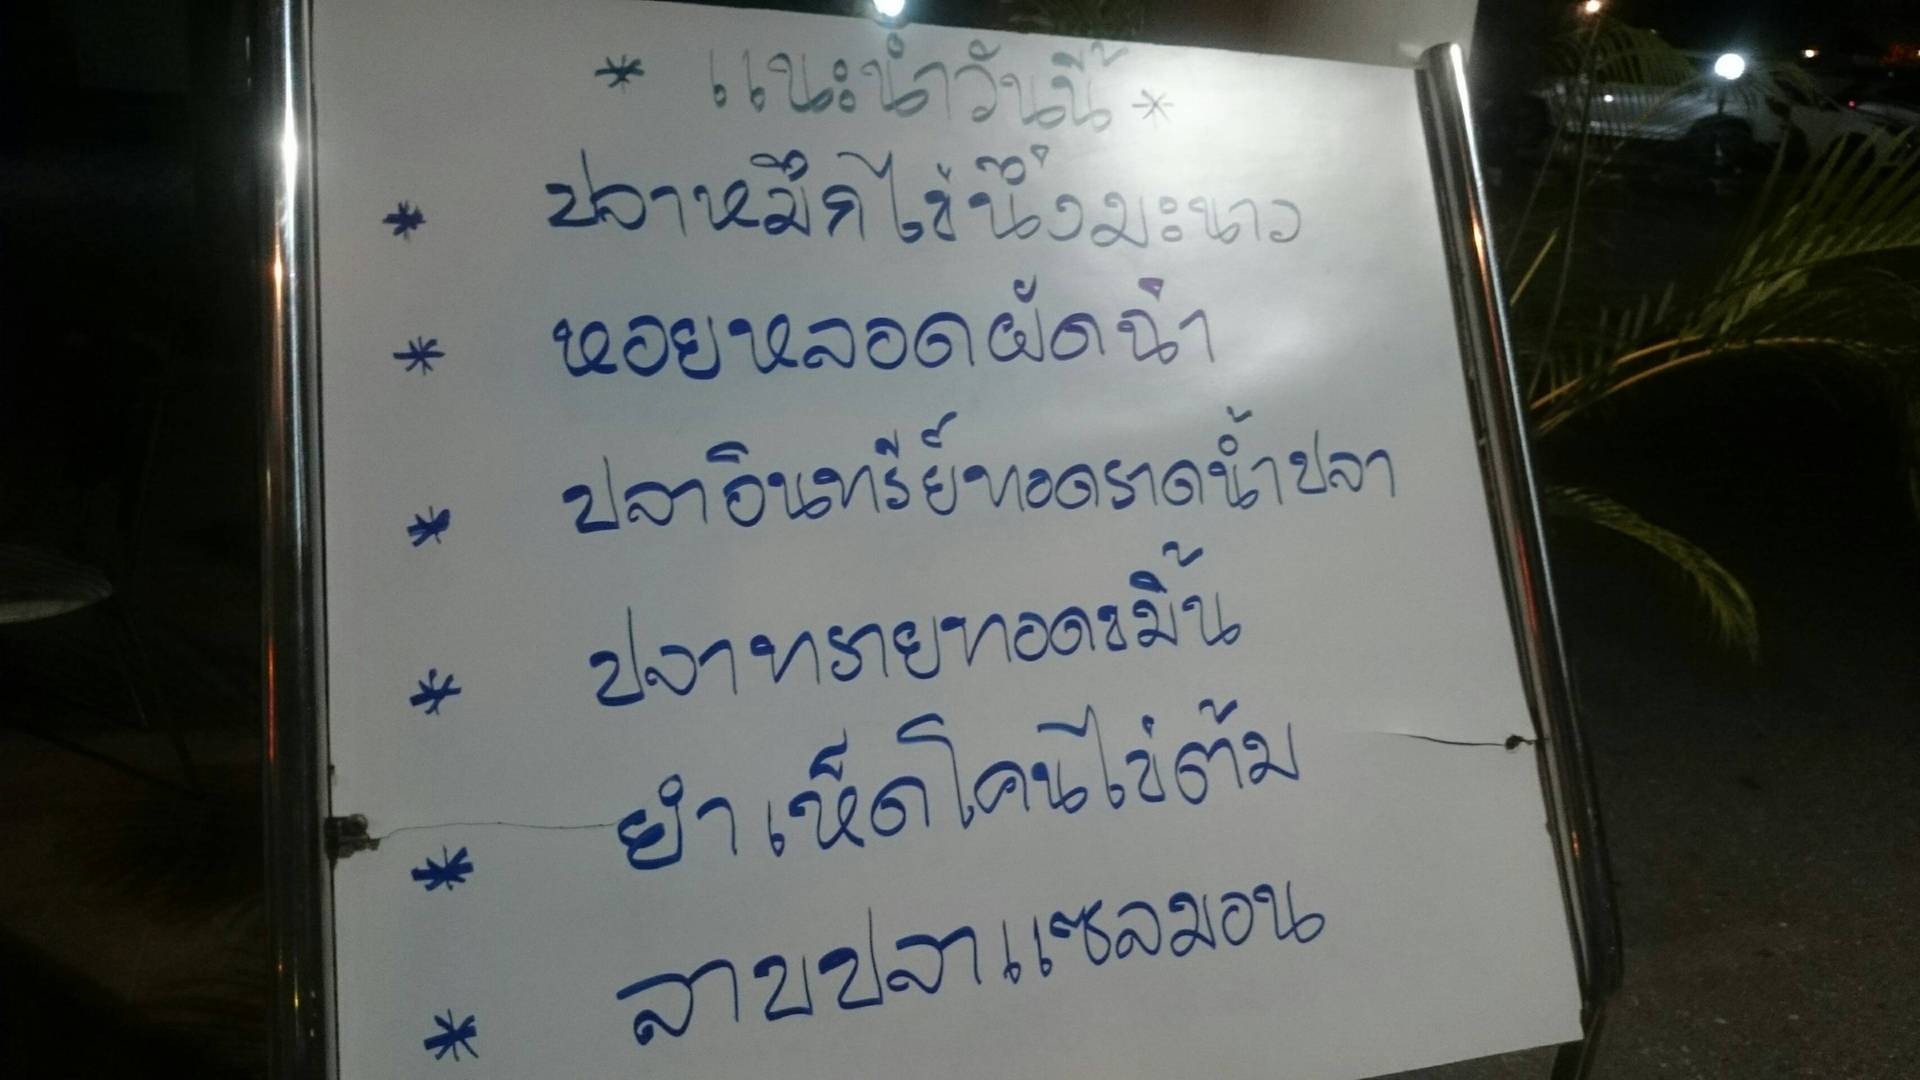 * แนะนำวันนี้ *
* ปลาหมึกไข่นึ่งมะนาว
* หอยหลอดผัดฉ่า
* ปลาอินทรีย์ทอดราดน้ำปลา
* ปลาทรายทอดขมิ้น
* ยำเห็ดโคนไข่ต้ม
* ลาบปลาแซลมอน